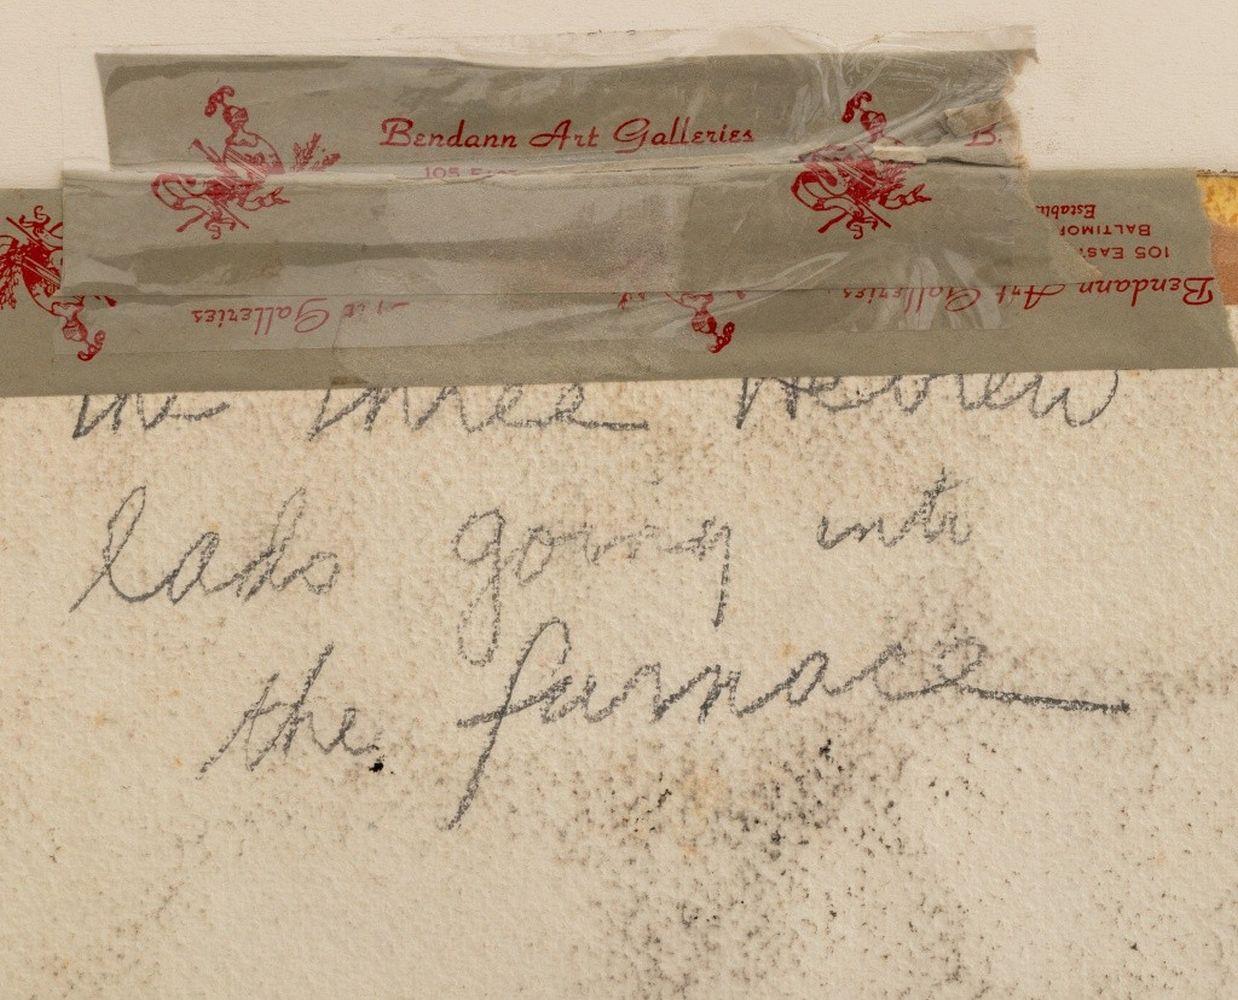 Bendann Art Galleries
B.
105 EAS
Establ
BALTIMOR
105 EAST
Bendann Art Galleries
Art Galleries
the three Hebrew
lads going into
the furnace